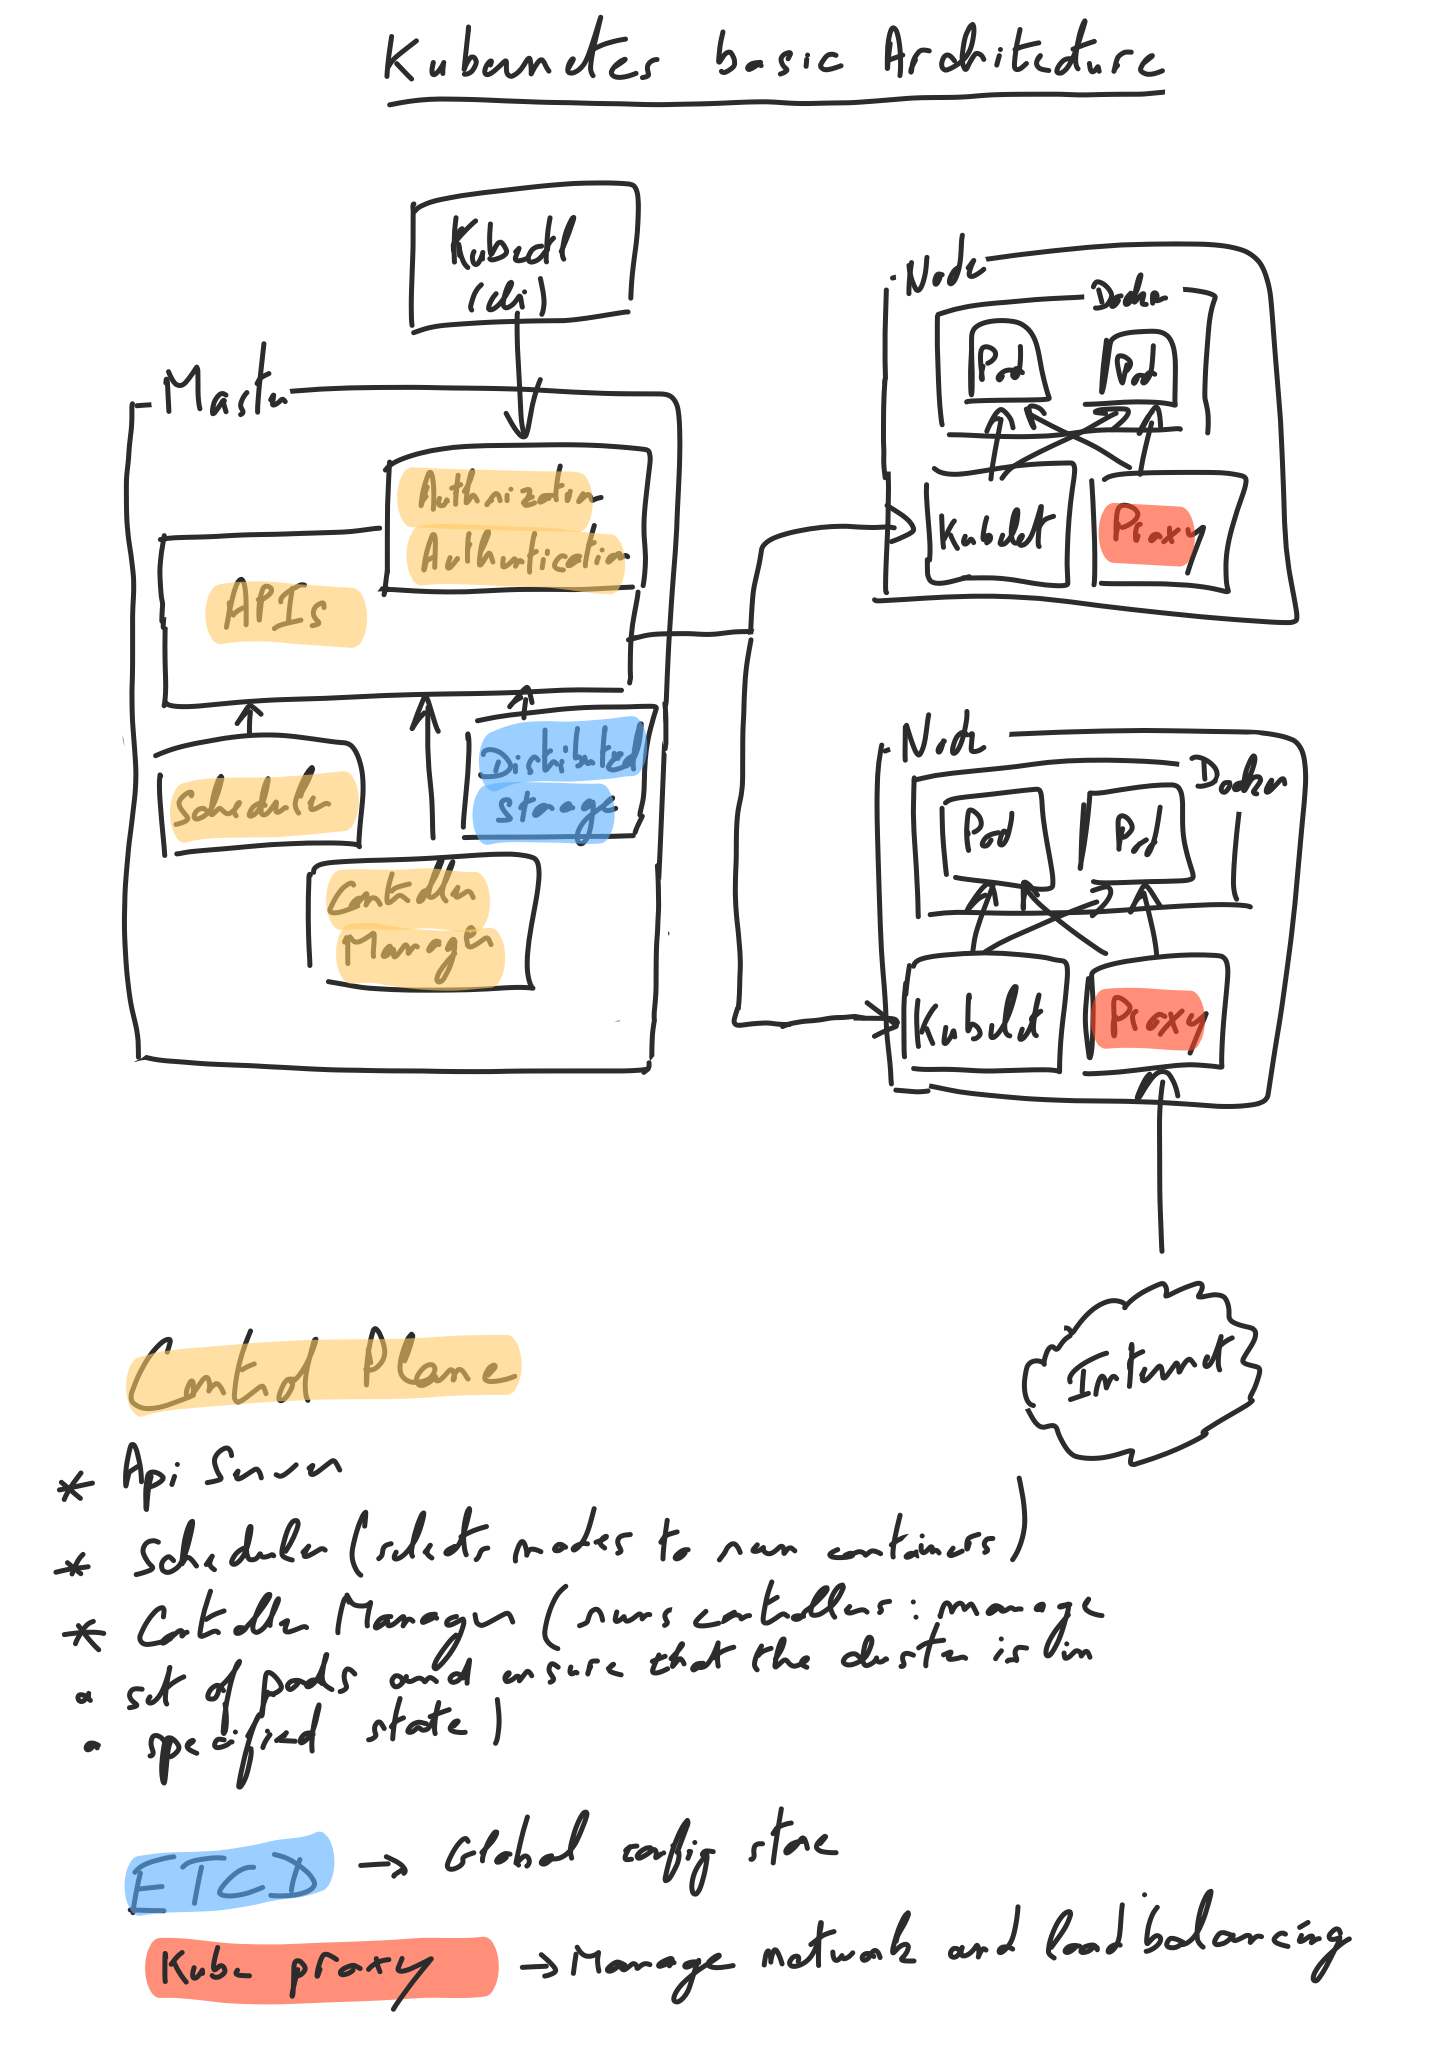 Kubernetes basic Architecture
Kubectl
(cli)
Master
Authorization
Authentication
APIs
Scheduler
Distributed
storage
Controller
Manager
Node
Docker
Pod
Pod
Kubelet
Proxy
Node
Docker
Pod
Pod
Kubelet
Proxy
Internet
Control Plane
* Api Server
* Scheduler (selects nodes to run containers)
* Controller Manager (runs controllers : manage
set of pods and ensure that the cluster is in
specified state)
ETCD → Global config store
Kube proxy → Manage network and load balancing